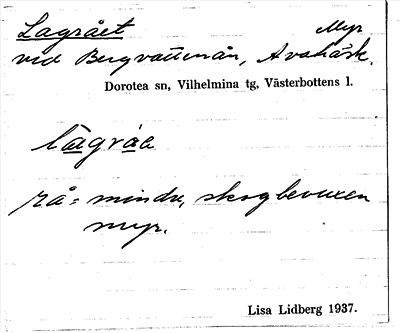 Lagrået Myr
vid Bergvattenån, Avaträsk.
Dorotea sn, Vilhelmina tg, Västerbottens l.
rå = mindre, skogbevuxen
myr.
Lisa Lidberg 1937.